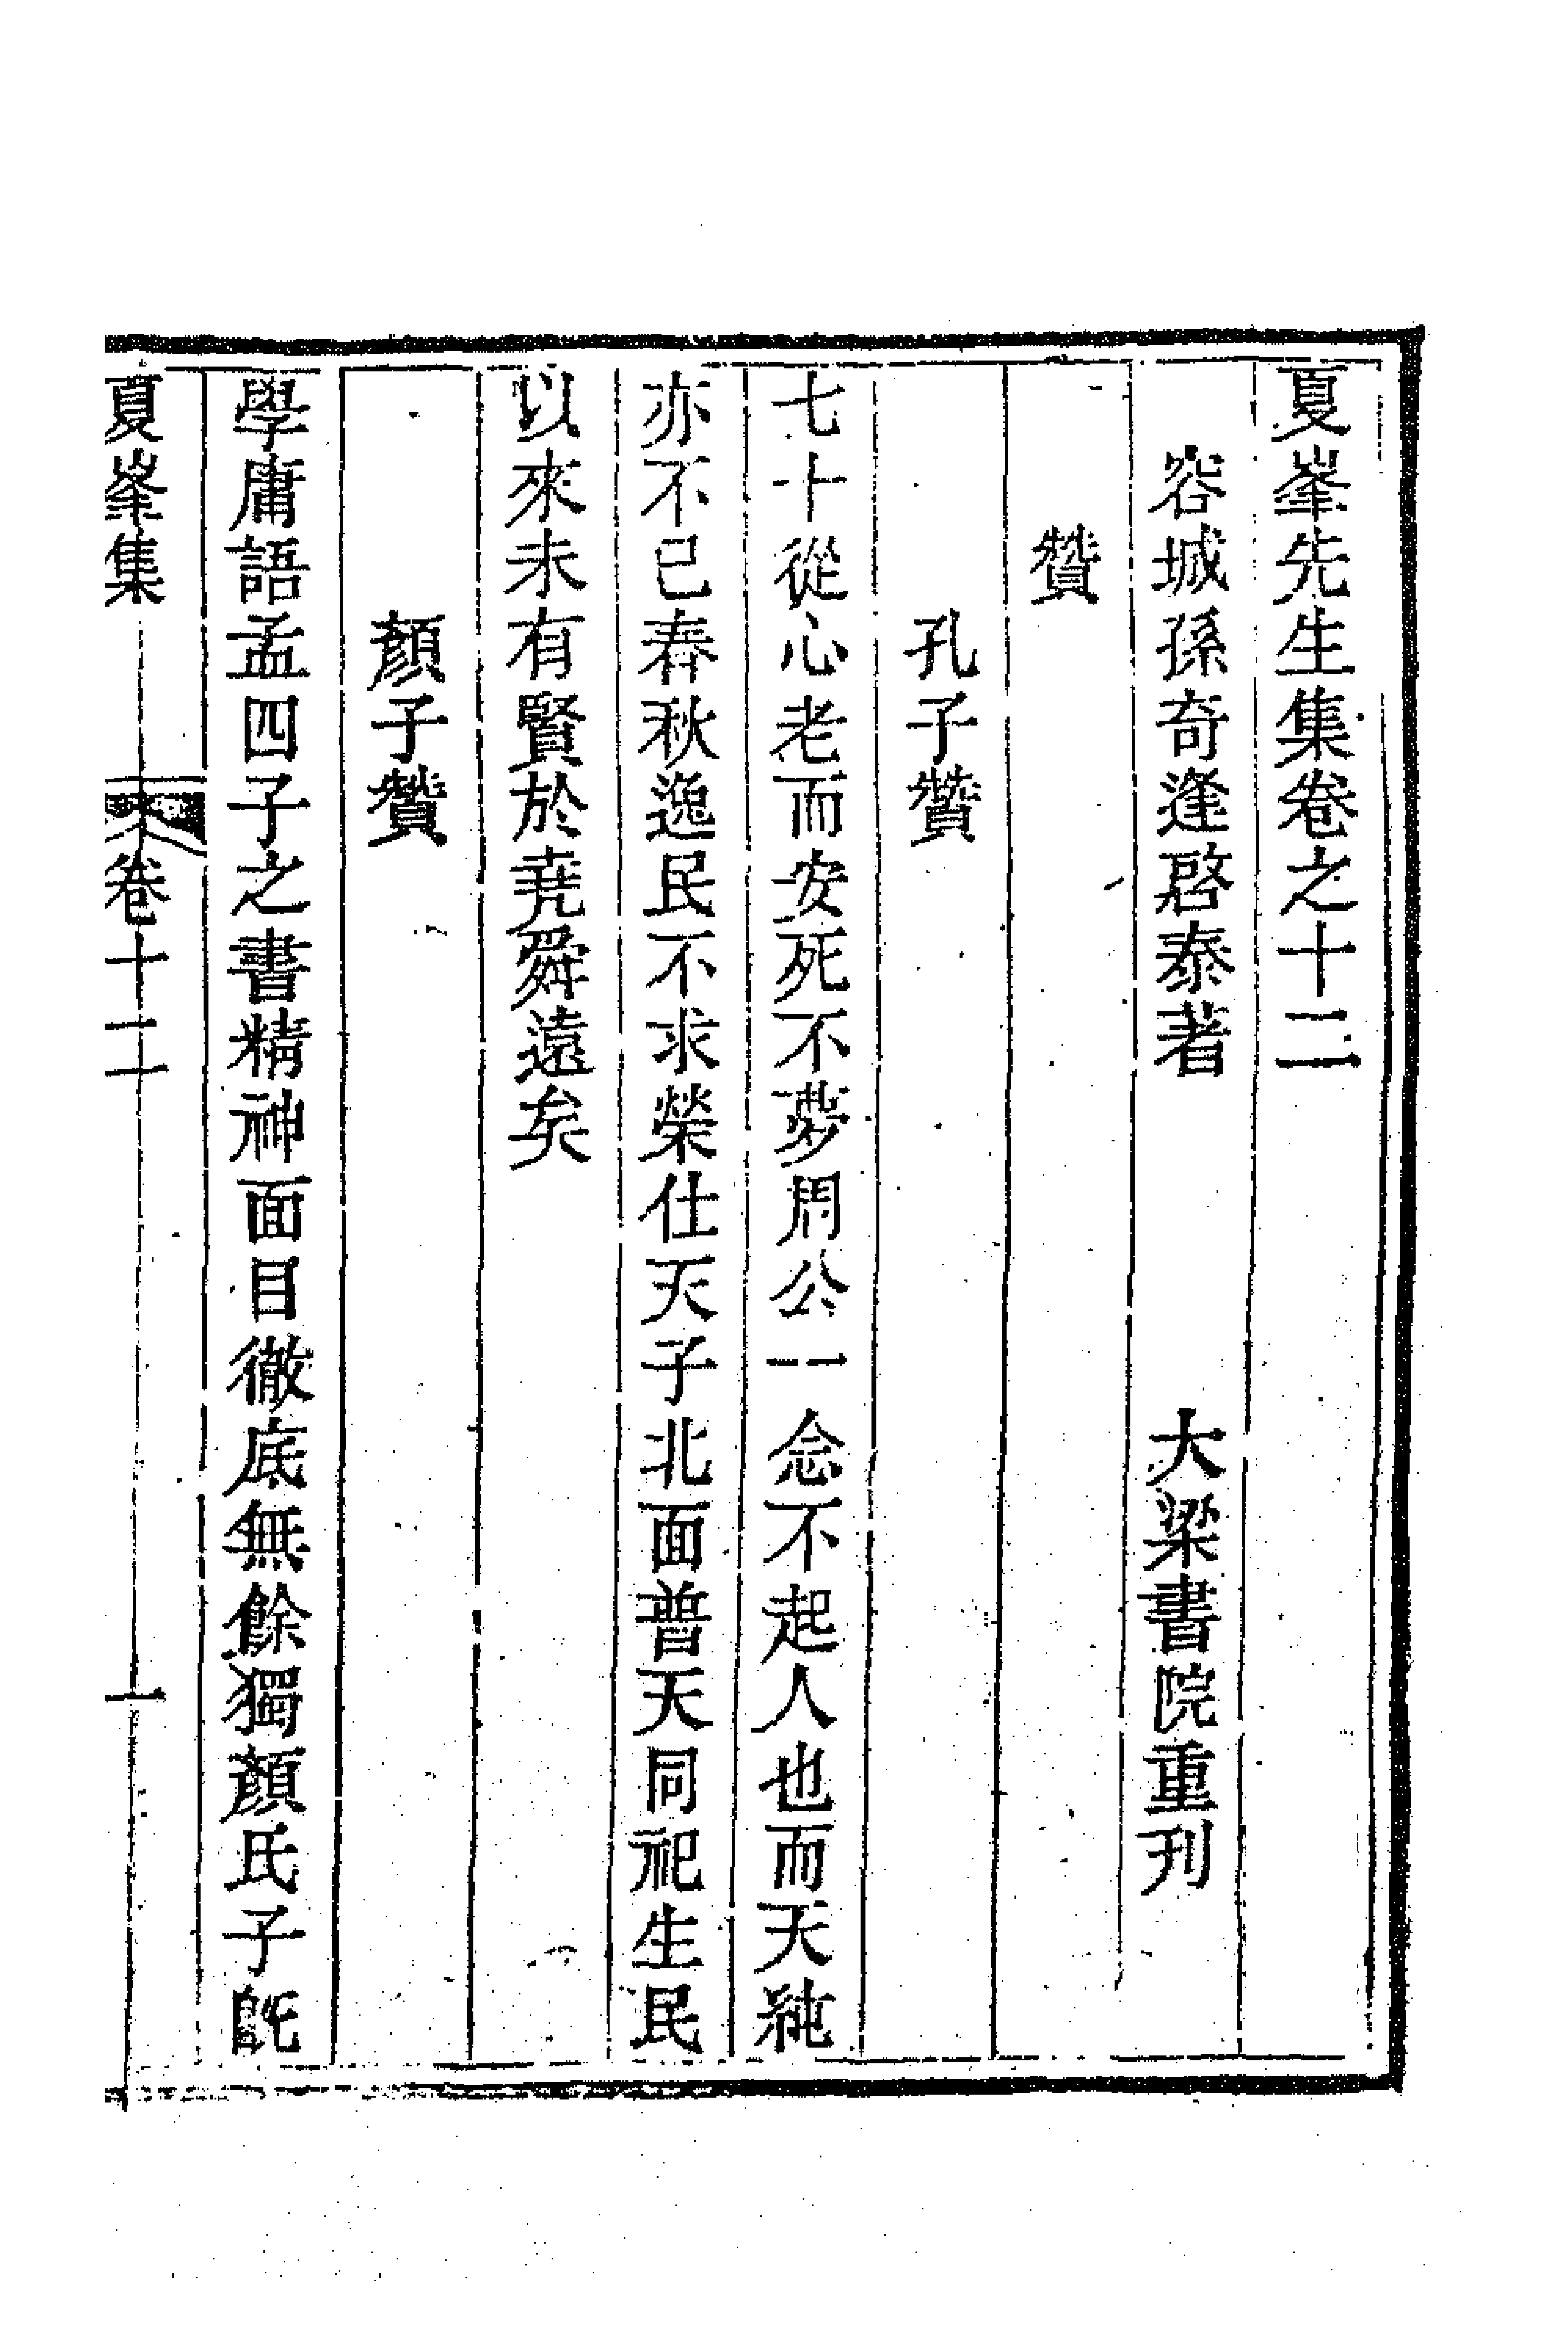 夏峯先生集卷之十二
容城孫奇逢啓泰著　大梁書院重刊
贊
孔子贊
七十從心老而安死不夢周公一念不起人也而天純
亦不已春秋逸民不求榮仕天子北面普天同祀生民
以來未有賢於堯舜遠矣
顏子贊
學庸語孟四子之書精神面目徹底無餘獨顏氏子旣
夏峯集　卷十二　一